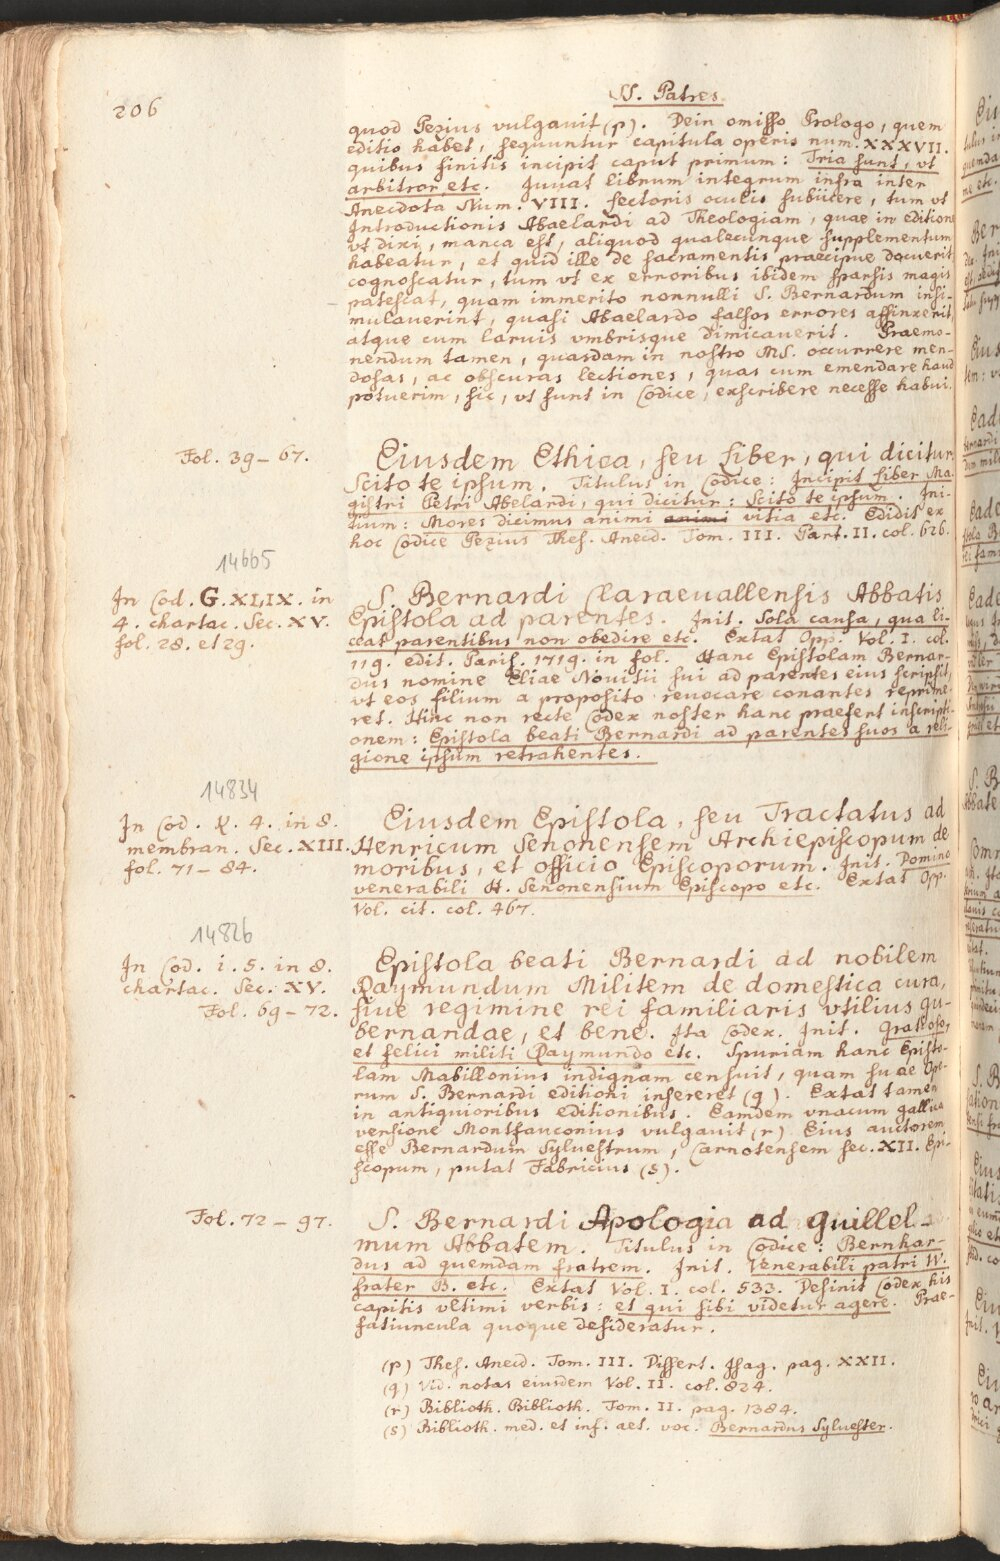 206
SS. Patres
quod Pezius vulgauit (p). Dein omisso Prologo, quem
editio habet, sequuntur capitula operis num. XXXVII.
quibus finitis incipit caput primum: Tria sunt, vt
arbitror, etc. Juuat librum integrum infra inter
Anecdota Num. VIII. lectoris oculis subiicere, tum vt
Introductionis Abaelardi ad Theologiam, quae in editione
vt dixi, manca est, aliquod qualecunque supplementum
habeatur, et quid ille de sacramentis praecipue docuerit
cognoscatur, tum vt ex erroribus ibidem sparsis magis
patescat, quam immerito nonnulli S. Bernardum insi-
mulauerint, quasi Abaelardo falsos errores affinxerit,
atque cum laruis vmbrisque dimicauerit. Praemo-
nendum tamen, quasdam in nostro MS. occurrere men-
dosas, ac obscuras lectiones, quas cum emendare haud
potuerim, sic, vt sunt in Codice, exscribere necesse habui.
Fol. 39-67.
Eiusdem Ethica, seu Liber, qui dicitur
Scito te ipsum. Titulus in Codice: Incipit Liber Ma-
gistri Petri Abelardi, qui dicitur: Scito te ipsum. Ini-
tium: Mores dicimus animi animi vitia etc. Edidit ex
hoc Codice Pezius Thes. Anecd. Tom. III. Part. II. col. 626.
14665
In Cod. G. XLIX. in
4. chartac. Sec. XV.
fol. 28. et 29.
S. Bernardi Claraeuallensis Abbatis
Epistola ad parentes. Init. Sola causa, qua li-
ceat parentibus non obedire etc. Extat Opp. Vol. I. col.
119. edit. Paris. 1719. in fol. Hanc Epistolam Bernar-
dus nomine Eliae Nouitii sui ad parentes eius scripsit,
vt eos filium a proposito reuocare conantes reprime-
ret. Hinc non recte Codex noster hanc praefert inscripti-
onem: Epistola beati Bernardi ad parentes suos a reli-
gione ipsum retrahentes.
14834
In Cod. K. 4. in 8.
membran. Sec. XIII.
fol. 71-84.
Eiusdem Epistola, seu Tractatus ad
Henricum Senonensem Archiepiscopum de
moribus, et officio Episcoporum. Init. Domino
venerabili H. Senonensium Episcopo etc. Extat Opp.
Vol. cit. col. 467.
14826
In Cod. i. 5. in 8.
chartac. Sec. XV.
Fol. 69-72.
Epistola beati Bernardi ad nobilem
Raymundum Militem de domestica cura,
siue regimine rei familiaris vtilius gu-
bernandae, et bene. Ita Codex. Init. Gratioso,
et felici militi Raymundo etc. Spuriam hanc Episto-
lam Mabillonius indignam censuit, quam suae Ope-
rum S. Bernardi editioni insereret (q). Extat tamen
in antiquioribus editionibus. Eamdem vnacum gallica
versione Montfauconius vulgauit (r) Eius auctorem
esse Bernardum Syluestrum, Carnotensem sec. XII. Epi-
scopum, putat Fabricius (s).
Fol. 72-97.
S. Bernardi Apologia ad Guillel-
mum Abbatem. Titulus in Codice: Bernhar-
dus ad quemdam fratrem. Init. Venerabili patri W.
frater B. etc. Extat Vol. I. col. 533. Desinit Codex his
capitis vltimi verbis: et qui sibi videtur agere. Prae-
fatiuncula quoque desideratur.
(p) Thes. Anecd. Tom. III. Dissert. Isag. pag. XXII.
(q) Vid. notas eiusdem Vol. II. col. 824.
(r) Biblioth. Biblioth. Tom. II. pag. 1384.
(s) Biblioth. med. et inf. aet. voc. Bernardus Syluester.